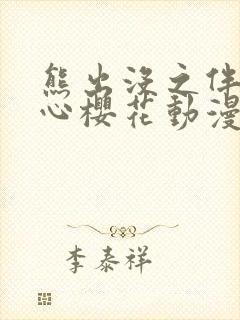 熊出没之伴
心櫻花動漫
李泰祥